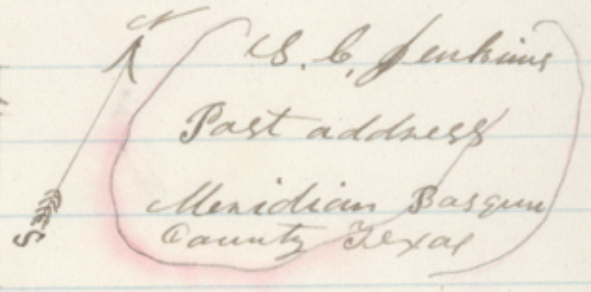 N
S. C. Jenkins
Post address
Meridian Basque
County Texas
S